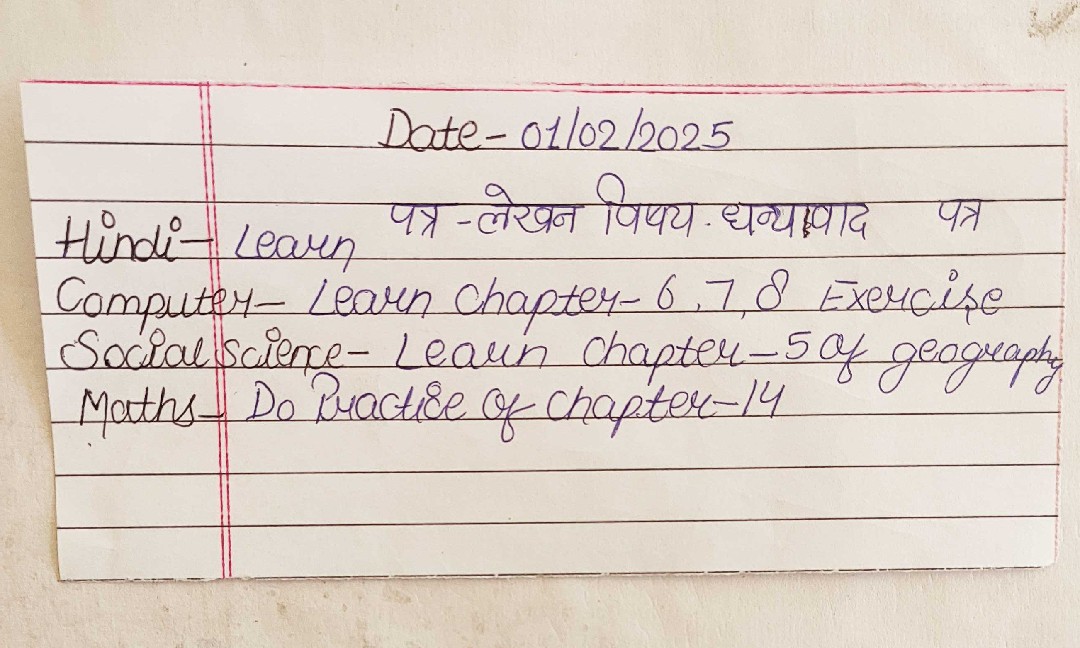 Date- 01/02/2025
Hindi- Learn पत्र -लेखन विषय. धन्यवाद पत्र
Computer- Learn Chapter- 6,7,8 Exercise
Social science- Learn Chapter-5 of geography
Maths- Do Practise of Chapter-14